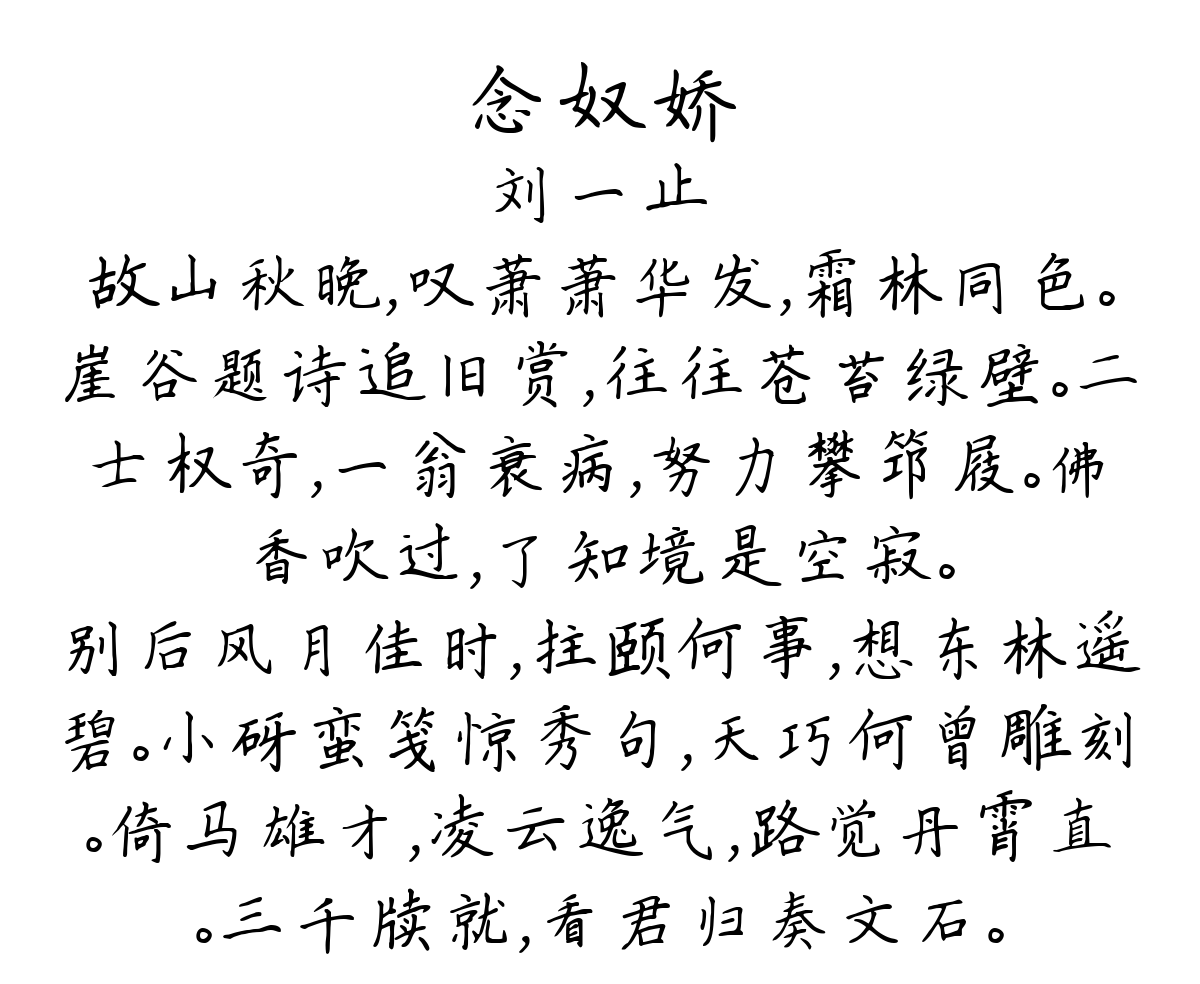 念奴娇
刘一止
故山秋晚,叹萧萧华发,霜林同色。
崖谷题诗追旧赏,往往苍苔绿壁。二
士权奇,一翁衰病,努力攀筇屐。佛
香吹过,了知境是空寂。
别后风月佳时,拄颐何事,想东林遥
碧。小砑蛮笺惊秀句,天巧何曾雕刻
。倚马雄才,凌云逸气,路觉丹霄直
。三千牍就,看君归奏文石。